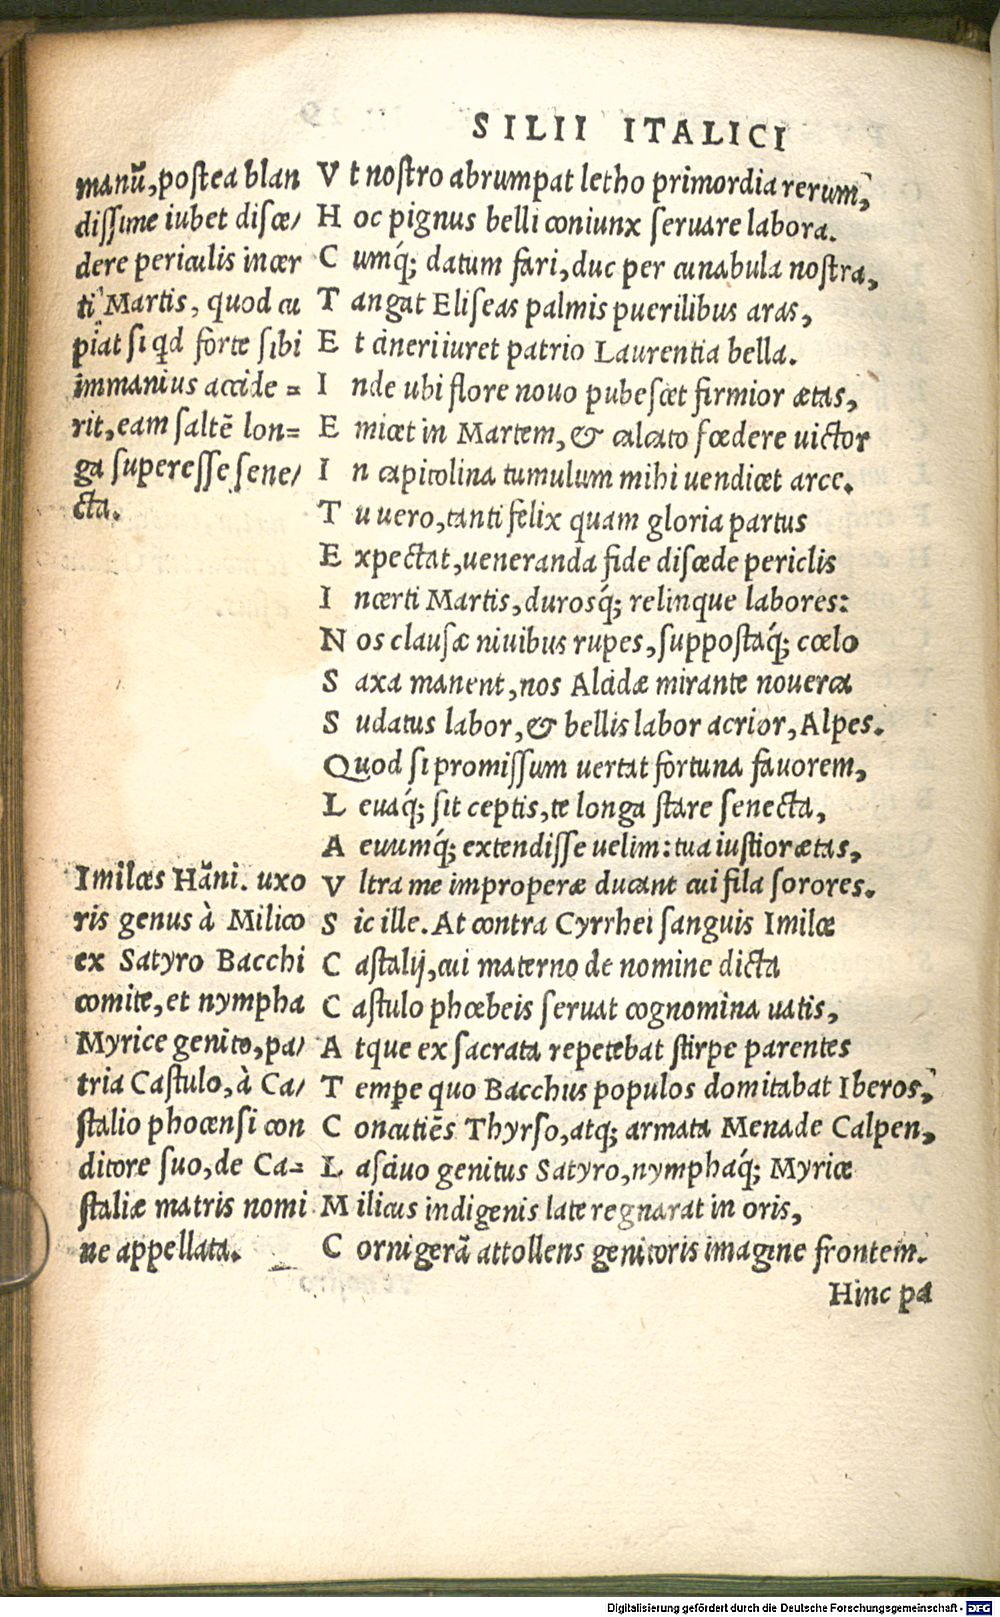 SILII ITALICI
manū, postea blan
dissime iubet disce/
dere periculis incer
ti Martis, quod cu
piat si qd forte sibi
immanius accide=
rit, eam saltē lon=
ga superesse sene/
cta.
Imilces Hāni. uxo
ris genus à Milico
ex Satyro Bacchi
comite, et nympha
Myrice genito, pa/
tria Castulo, à Ca/
stalio phocensi con
ditore suo, de Ca=
staliæ matris nomi
ne appellata.
Vt nostro abrumpat letho primordia rerum,
Hoc pignus belli coniunx seruare labora.
Cumq́; datum fari, duc per cunabula nostra,
Tangat Eliseas palmis puerilibus aras,
Et cineri iuret patrio Laurentia bella.
Inde ubi flore nouo pubescet firmior ætas,
Emicet in Martem, & calcato fœdere uictor
In capitolina tumulum mihi uendicet arce.
Tu uero, tanti felix quam gloria partus
Expectat, ueneranda fide discede periclis
Incerti Martis, durosq́; relinque labores:
Nos clausæ niuibus rupes, suppostaq́; cœlo
Saxa manent, nos Alcidæ mirante nouerca
Sudatus labor, & bellis labor acrior, Alpes.
Quod si promissum uertat fortuna fauorem,
Leuaq́; sit ceptis, te longa stare senecta,
Aeuumq́; extendisse uelim: tua iustior ætas,
Vltra me improperæ ducant cui fila sorores.
Sic ille. At contra Cyrrhei sanguis Imilce
Castalij, cui materno de nomine dicta
Castulo phœbeis seruat cognomina uatis,
Atque ex sacrata repetebat stirpe parentes
Tempe quo Bacchus populos domitabat Iberos,
Concutiēs Thyrso, atq; armata Menade Calpen,
Lasciuo genitus Satyro, nymphaq́; Myrice
Milicus indigenis late regnarat in oris,
Cornigerā attollens genitoris imagine frontem.
Hinc pa
Digitalisierung gefördert durch die Deutsche Forschungsgemeinschaft - DFG